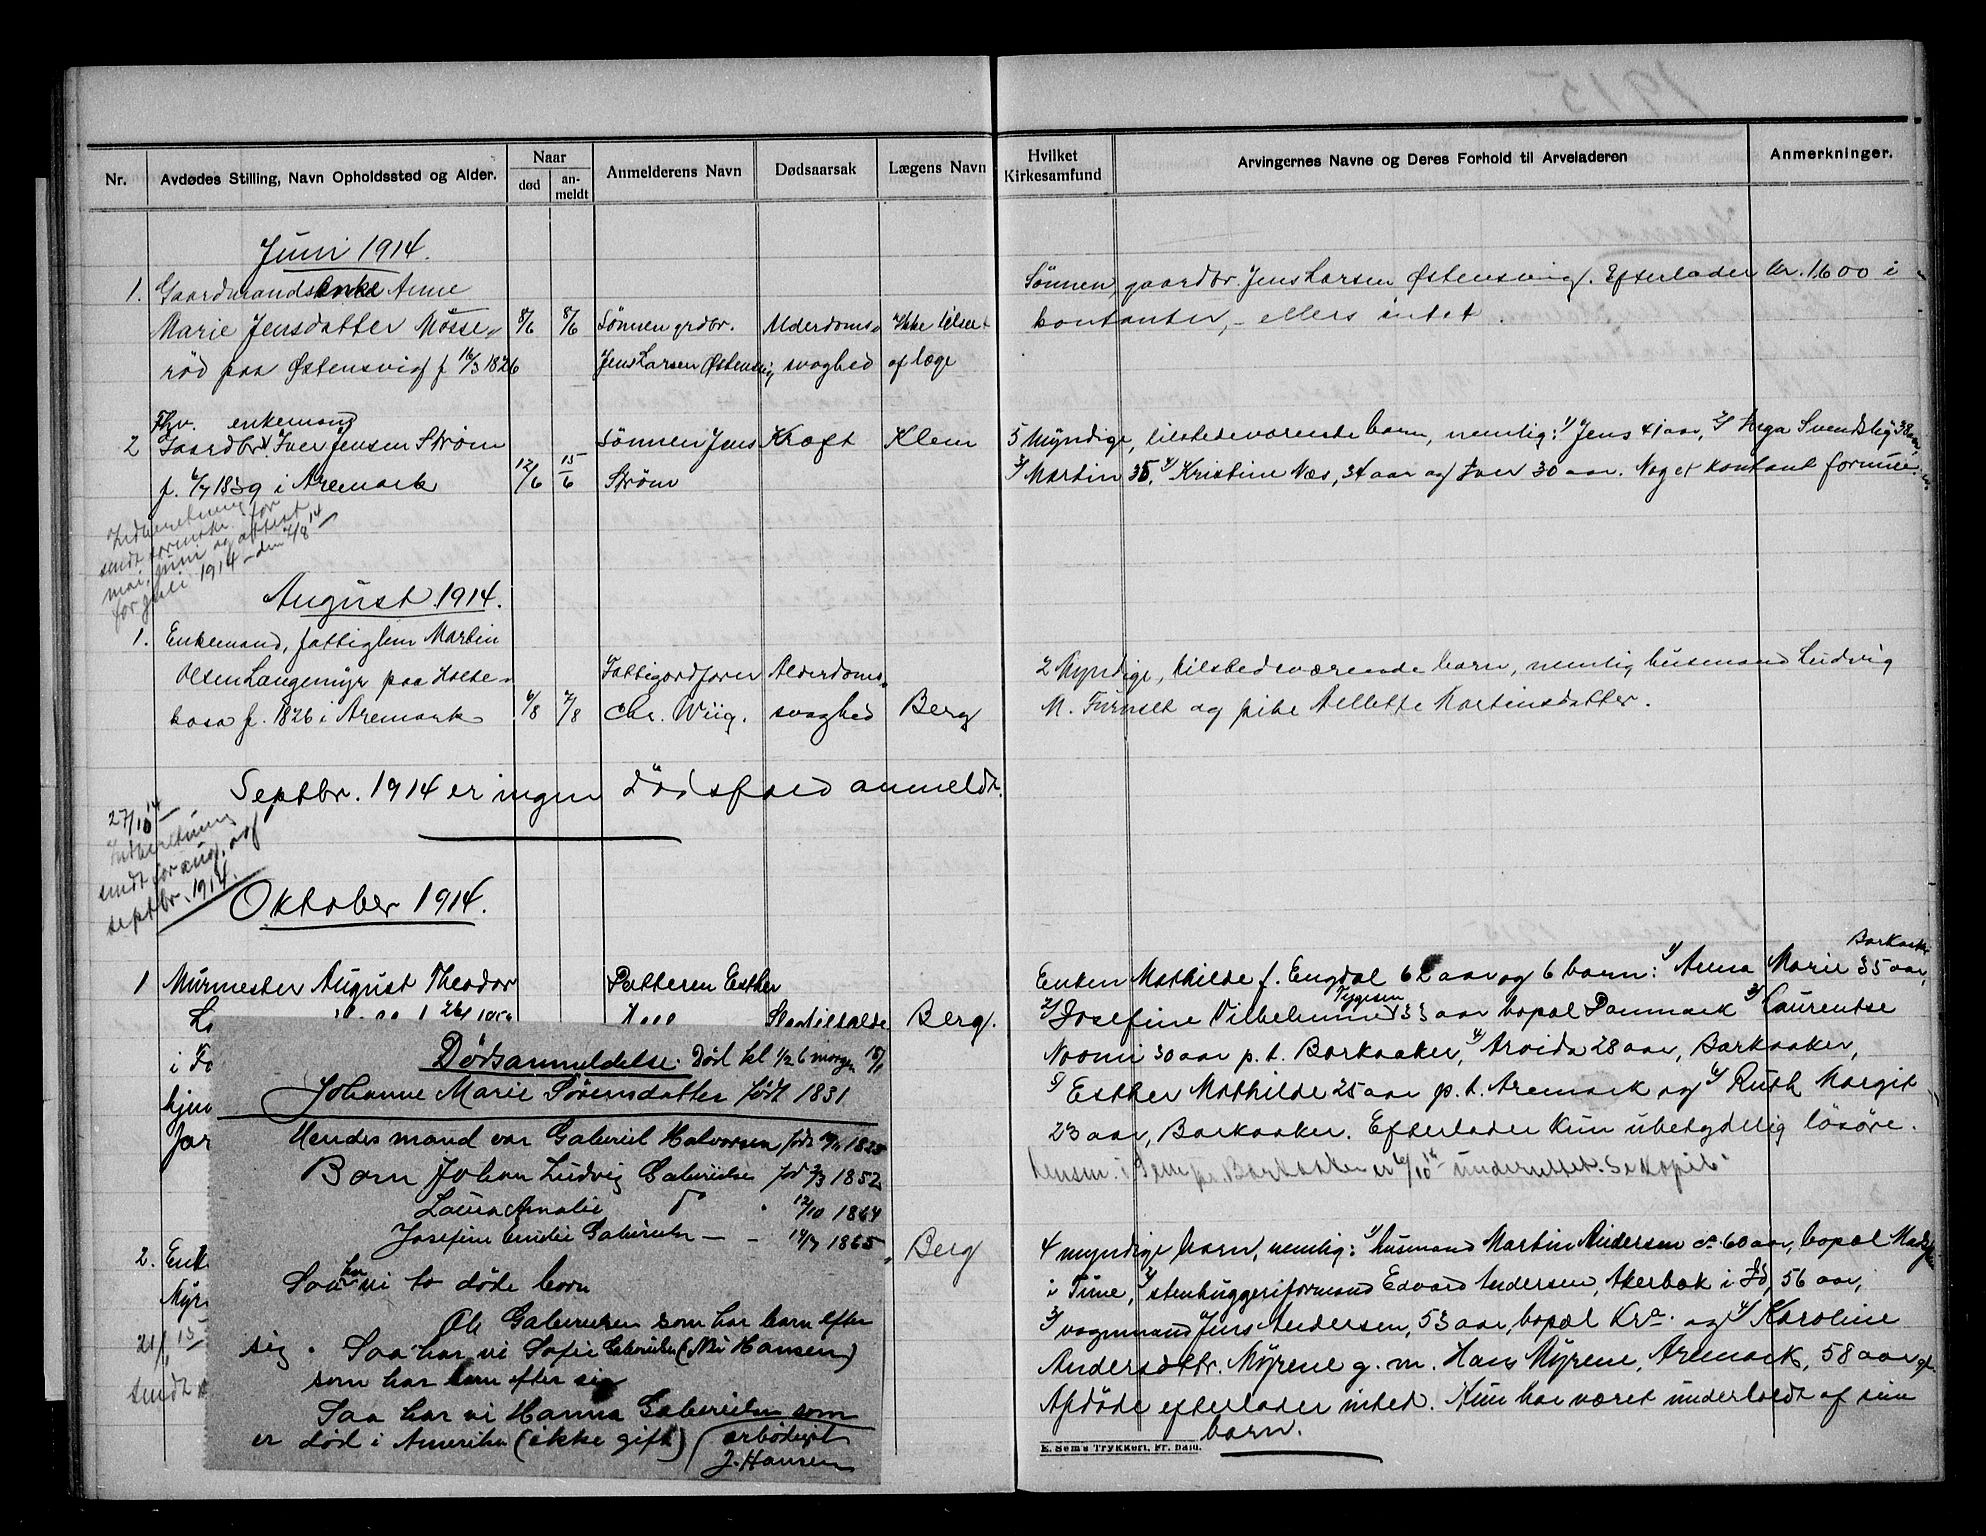 1915.
Nr.
Avdødes Stilling, Navn Opholdssted og Alder.
Naar
død
an-
meldt
Anmelderens Navn
Dødsaarsak
Lægens Navn
Hvilket
Kirkesamfund
Arvingernes Navne og Deres Forhold til Arveladeren
Anmerkninger.
Juni 1914.
1. Gaardmandsenke Anne
Marie Jensdatter Mosse-
rød paa Østensvig f 16/3 1826
8/6
8/6
Sønnen grdbr.
Jens Larsen Østensvig
Alderdoms-
svaghed
Ikke tilseet
af læge
Sønnen, gaardbr. Jens Larsen Østensvig. Efterlader kr. 1600 i
kontanter, - ellers intet.
2 Fhv. enkemand
Gaardbr. Iver Jensen Strøm
f. 6/7 1839 i Aremark
12/6
15/6
Sønnen Jens
Strøm
Kræft
Klem
5 Myndige, tilstedeværende barn, nemlig: 1/ Jens 41 aar, 2/ Inga Svendsby 38 aar,
3/ Martin 35, 4/ Kristine Næs, 34 aar og Iver 30 aar. Noget kontant formue.
Indberetning
sendt sormskr. for
mai, juni og attest
for juli 1914 - den 7/8 14
August 1914.
1. Enkemand, fattiglem Martin
Olsen Langemyr paa Holte-
kasa f. 1826 i Aremark
6/8
7/8
Fattigordfører
Chr. Wiig.
Alderdoms-
svaghed
Berg
2 Myndige, tilstedeværende barn, nemlig husmand Ludvig
M. Furuset og pike Nellette Martinsdatter.
Septbr. 1914 er ingen dødsfald anmeldt.
27/10 14
Indberetning
sendt for aug. og
septbr. 1914.
Oktober 1914.
1 Murmester August Theodor
i Fo
hjem
far
Datteren Esther
Slagtilfælde
Berg.
Enken Mathilde f. Engdal 62 aar og 6 barn: 1/ Anna Marie 35 aar, Barkaaker
2/ Josefine Vilhelmine Tygesen 33 aar bopal Danmark 3/ Laurentse
Noomi 30 aar p. t. Barkaaker, 4/ Arvida 28 aar, Barkaaker,
5/ Esther Mathilde 25 aar p. t. Aremark og 6/ Ruth Margit
23 aar, Barkaaker. Efterlader kun ubetydelig løsøre.
Lensm. i Sem pr. Barkaaker er 6/10 14 underrettet. Se kopib.
Dødsanmeldelse. Død kl 1/2 6 morgen 15/1
Johanne Marie Sørensdatter født 1831
Hendes mand var Gabriel Halvorsen født 1825
Børn Johan Ludvig Gabrielsen fød 2/3 1852
Laura Amalie 12/10 1864
Josefine Emilie Gabrielsen 14/7 1865
Saa har vi to døde børn
Ole Gabrielsen som har barn efter
sig. Saa har vi Sofie Gabrielsen (Nu Hansen)
som har barn efter sig
Saa har vi Hanna Gabrielsen som
er død i Amerika (ikke gift) Ærbødigst
J. Hansen
2. Enk
Myr
21/ 15
sendt
Berg
4 myndige barn, nemlig: 1/ husmand Martin Andersen ca 60 aar, bopæl
i Tune, 2/ stenhuggeriformand Edvard Andersen, Akerbæk i Id, 56 aar,
3/ vognmand Jens Andersen, 53 aar, bopæl Kra. og 4/ Karoline
Andersdtr. Myrene g. m. Hans Myrene, Aremark, 58 aar gl.
Afdøde efterlader intet. Hun har været underholdt af sine
barn.
E. Sem's Trykkeri, Fr.hald.